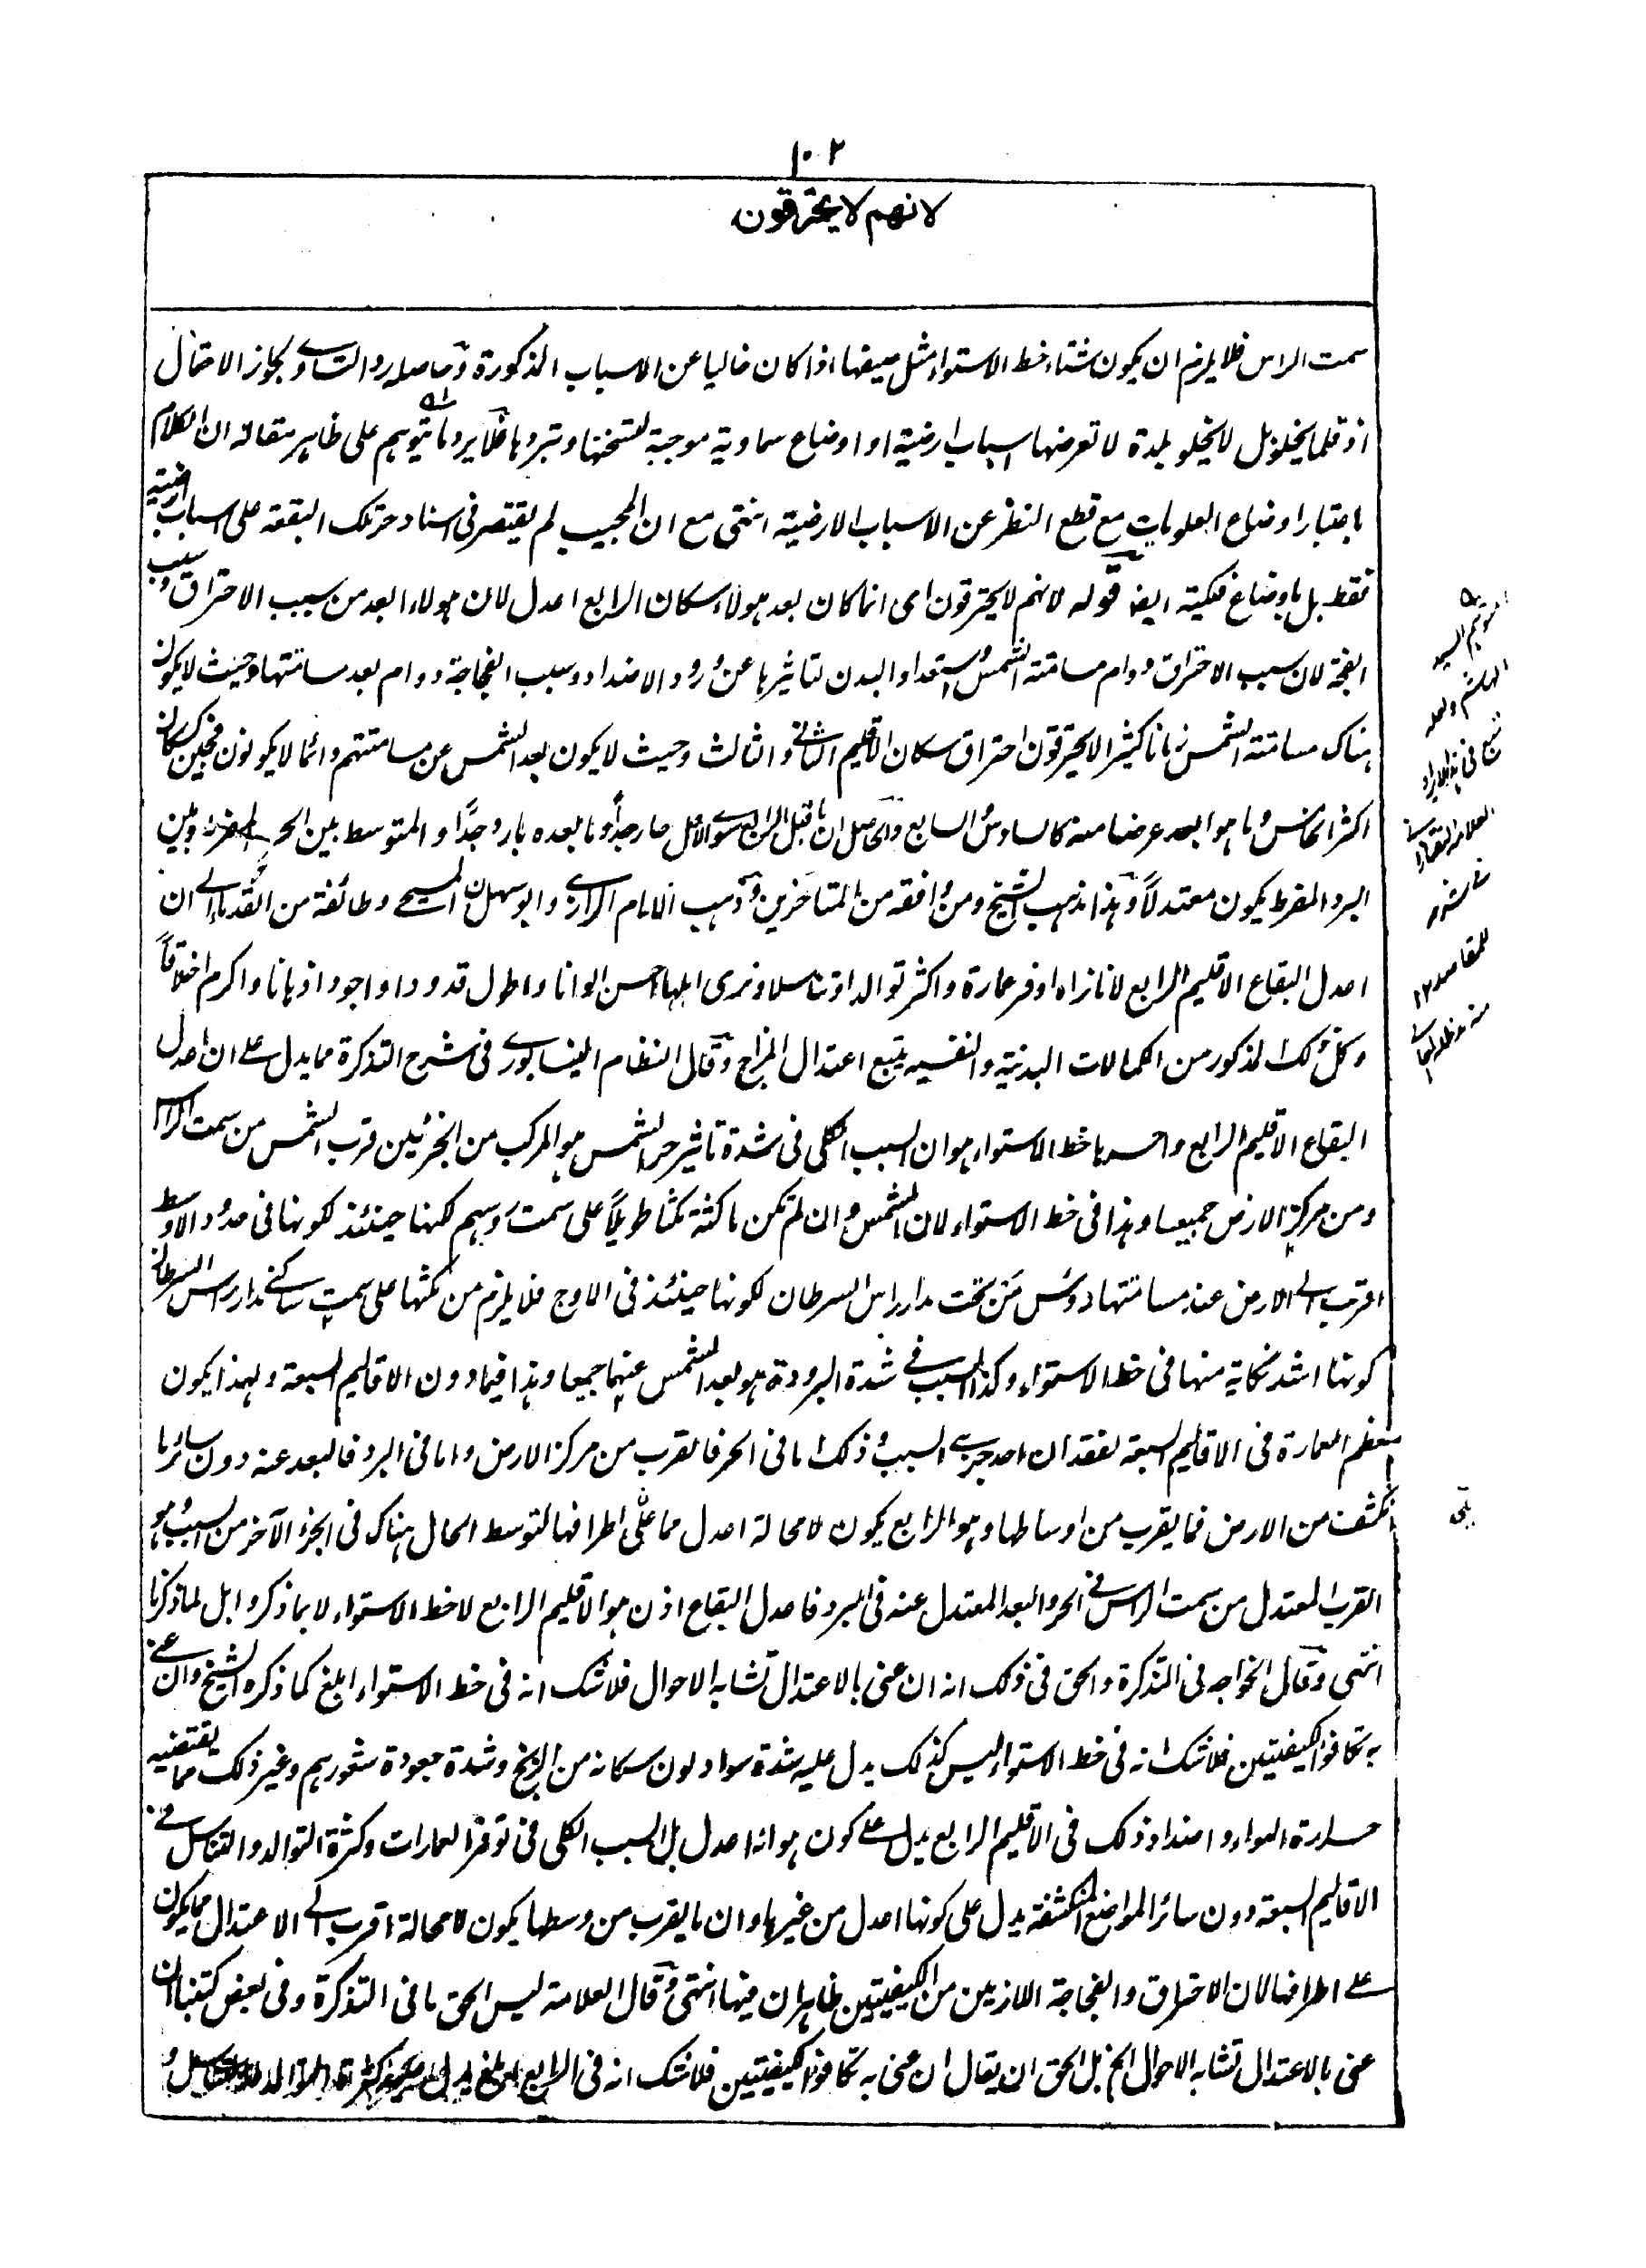 ١٠٢
لانهم لا يحترقون
سمت الراس فلا يلزم ان يكون شتاء خط الاستواء مثل صيفها اذا كان خاليا عن الاسباب المذكورة وحاصله رد التساوي بجواز الاحتمال
اذ قلما يخلو بل لا يخلو بلدة لا تعرضها اسباب ارضية او اوضاع سماوية موجبة لتسخنها وتبردها فلا يرد ما يتوهم على ظاهر مقالته ان الكلام
باعتبار اوضاع العلويات مع قطع النظر عن الاسباب الارضية انتهى مع ان المجيب لم يقتصر في اسناد حر تلك البقعة على اسباب ارضية
فقط بل باوضاع فلكية ايضا قوله لانهم لا يحترقون اى انما كان بعد هولاء سكان الرابع اعدل لان هولاء ابعد من سبب الاحتراق وسبب
الفجة لان سبب الاحتراق دوام مسامتة الشمس واستعداد البدن لتاثيرها عن ورود الاضداد وسبب الفجاجة دوام بعد مسامتتها وحيث لا يكون
هناك مسامتة الشمس زمانا كثيرا لا يحترقون احتراق سكان الاقليم الثاني والثالث وحيث لا يكون بعد الشمس عن مسامتتهم دائما لا يكونون فجين كسكان
اكثر الخامس وما هو ابعد عرضا منه كالسادس والسابع والحاصل ان ما قبل الرابع سوى الاول حار جدا وما بعده بارد جدا والمتوسط بين الحر المفرط وبين
البرد المفرط يكون معتدلا وهذا مذهب الشيخ ومن وافقه من المتاخرين وذهب الامام الرازي وابو سهل المسيحي وطائفة من القدماء الى ان
اعدل البقاع الاقليم الرابع لانا نراه اوفر عمارة واكثر توالدا وتناسلا ونرى اهلها احسن الوانا واطول قدودا واجود اذهانا واكرم اخلاقا
وكل ذلك المذكور من الكمالات البدنية والنفسية يتبع اعتدال المزاج وقال النظام النيسابوري في شرح التذكرة مما يدل على ان اعدل
البقاع الاقليم الرابع واحرها خط الاستواء هو ان السبب الكلى فى شدة تاثير حر الشمس هو المركب من الجزئين قرب الشمس من سمت الراس
ومن مركز الارض جميعا وهذا فى خط الاستواء لان الشمس وان لم تكن ماكثة مكثا طويلا على سمت رؤسهم لكنها حينئذ لكونها فى حدود الاوسط
اقرب الى الارض عند مسامتتها رؤس من تحت مدار راس السرطان لكونها حينئذ فى الاوج فلا يلزم من مكثها على سمت ساكنى مدار راس السرطان
كونها اشد نكاية منها فى خط الاستواء وكذا السبب في شدة البرودة هو بعد الشمس عنهما جميعا وهذا فيما دون الاقاليم السبعة ولهذا يكون
معظم العمارة فى الاقاليم السبعة لفقدان احد جزئي السبب وذلك اما فى الحر فالقرب من مركز الارض واما فى البرد فالبعد عنه دون سائر ما
انكشف من الارض فما يقرب من اوساطها وهو الرابع يكون لا محالة اعدل مما على اطرافها لتوسط الحال هناك فى الجزء الآخر من السبب وهو
القرب المعتدل من سمت الراس فى الحر والبعد المعتدل عنه فى البرد فاعدل البقاع اذن هو الاقليم الرابع لا خط الاستواء لا بما ذكروا بل لما ذكرنا
انتهى وقال الخواجه فى التذكرة والحق فى ذلك انه ان عنى بالاعتدال تشابه الاحوال فلا شك انه فى خط الاستواء ابلغ كما ذكره الشيخ وان عنى
به تكافؤ الكيفيتين فلا شك انه فى خط الاستواء ليس كذلك يدل عليه شدة سواد لون سكانه من الزنج وشدة جعودة شعورهم وغير ذلك مما يقتضيه
حرارة الهواء واضداد ذلك فى الاقليم الرابع يدل على كون هوائه اعدل بل السبب الكلى فى توفر العمارات وكثرة التوالد والتناسل فى
الاقاليم السبعة دون سائر المواضع المنكشفة يدل على كونها اعدل من غيرها وان ما يقرب من وسطها يكون لا محالة اقرب الى الاعتدال مما يكون
على اطرافها لان الاحتراق والفجاجة اللازمين من الكيفيتين ظاهران فيها انتهى وقال العلامة ليس الحق ما فى التذكرة وفى بعض كتبنا ان
عنى بالاعتدال تشابه الاحوال الخ بل الحق ان يقال ان عنى به تكافؤ الكيفيتين فلا شك انه فى الرابع ابلغ يدل
المتوهم السيد
الهاشم ولعله
تبع فى هذا الايراد
العلامة التفتازانى
فى شرحه
للمقاصد ١٢
منه مد ظله العالى